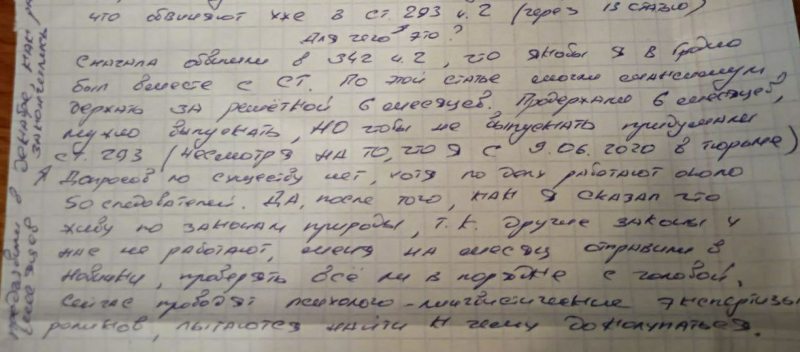 что обвиняют уже в ст. 293 ч. 2 (через 13 статью)
Для чего это?
Сначала обвинили в 342 ч. 2, что якобы я в Гродно
был вместе с СТ. По этой статье могли максимум
держать за решёткой 6 месяцев. Продержали 6 месяцев,
нужно выпускать, но чтобы не выпускать придумали
ст. 293 (несмотря на то, что я с 9.06.2020 в тюрьме)
Допросов по существу нет, хотя по делу работают около
50 следователей. Да, после того, как я сказал что
живу по законам природы, т.к. другие законы у
нас не работают, меня на месяц отправили в
Новинки, проверять всё ли в порядке с головой.
Сейчас проводят психолого-лингвистические экспертизы
роликов, пытаются найти к чему докопаться.
предъявили в декабре, как
закончились